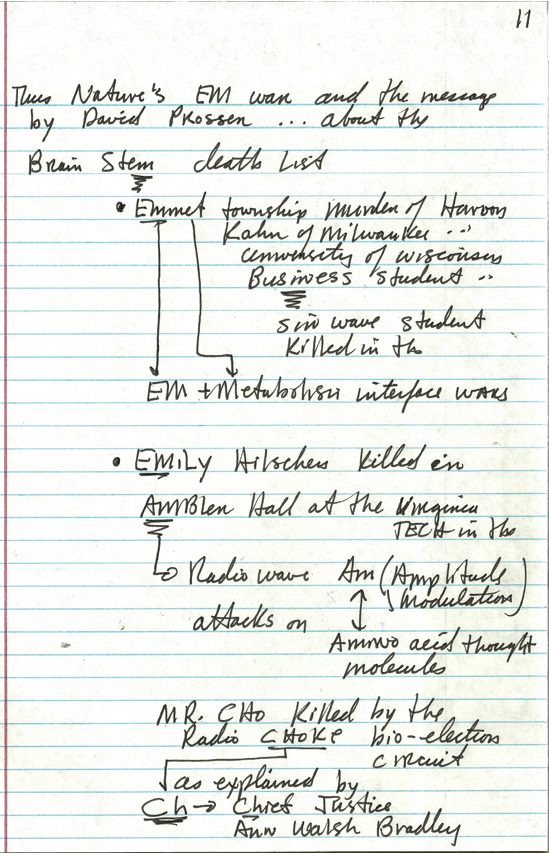 11
Thus Nature's EM war and the message
by David Prosser ... about the
Brain Stem death List
• Emmet township murder of Haroon
Kahn of Milwaukee ...
university of wisconsin
Business student ..
sin wave student
killed in the
EM + Metabolism interface wars
• EMiLy Hilscher killed in
AmBler Hall at the Virginia
TECH in the
Radio wave Am (Amplitude
modulation)
attacks on
Amino acid thought
molecules
MR. CHO killed by the
Radio CHOKE bio-electron
circuit
as explained by
Ch → Chief Justice
Ann Walsh Bradley